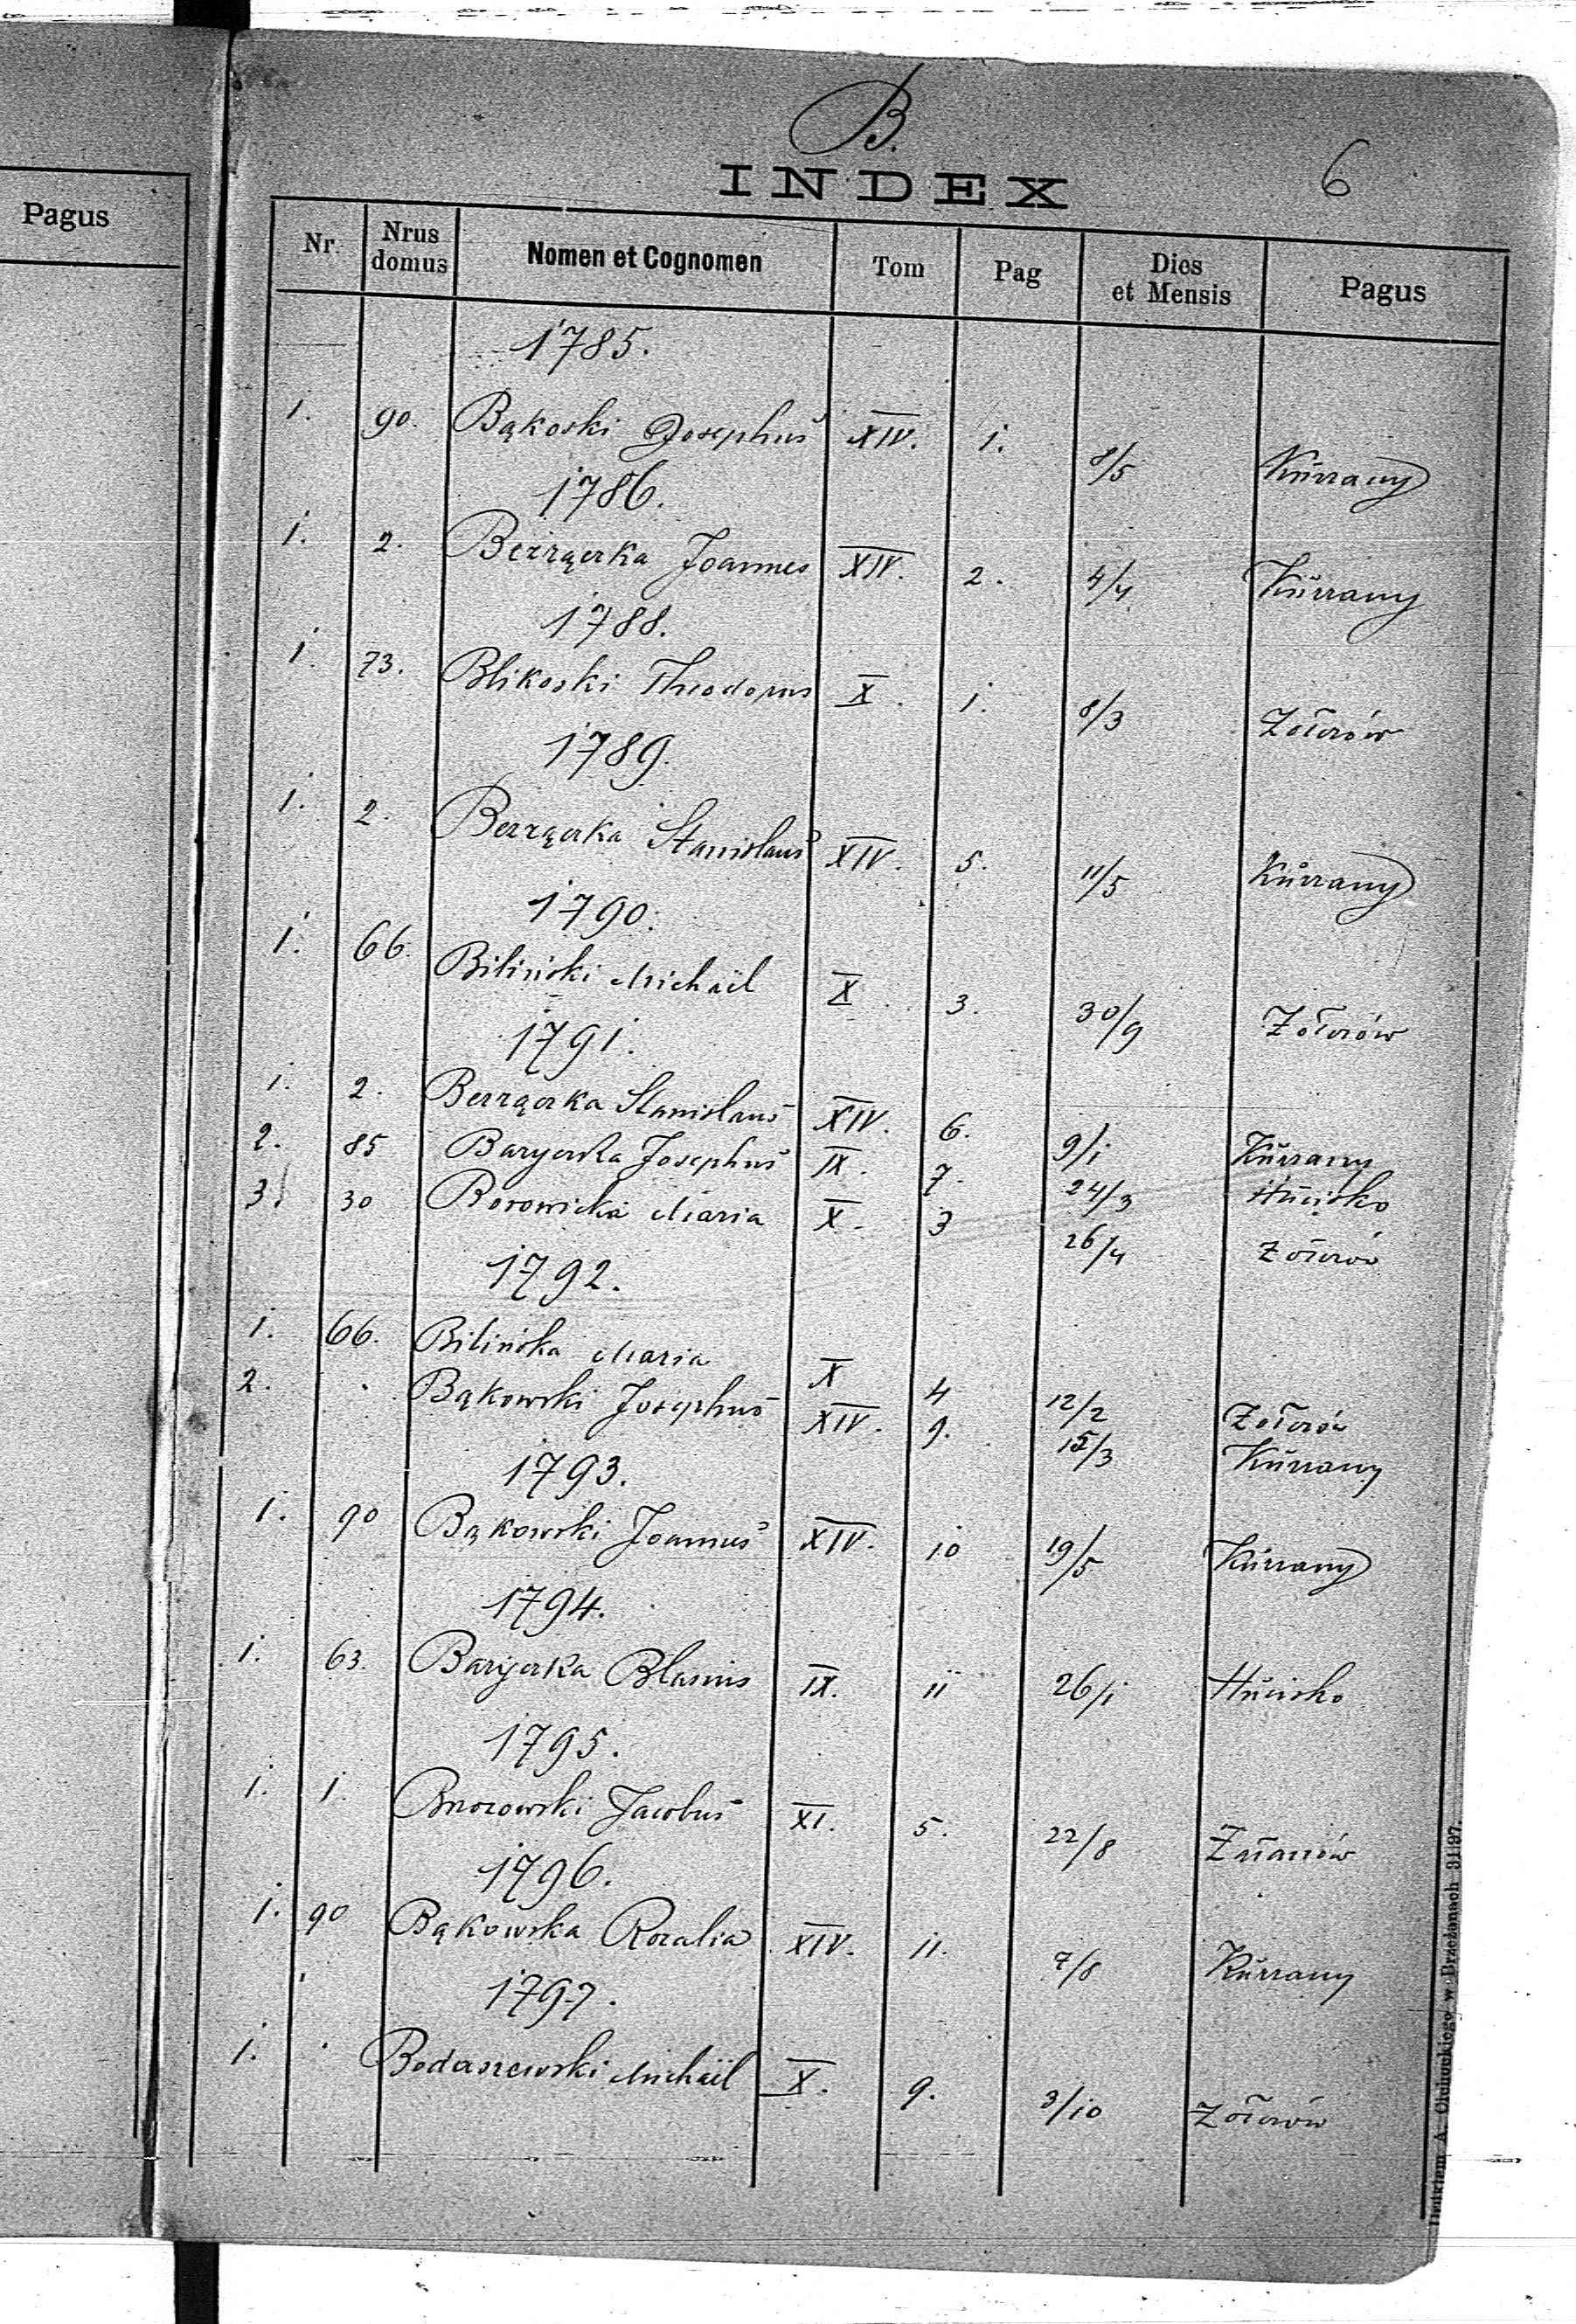 Pagus
B.
INDEX
6
Nr. Nrus domus Nomen et Cognomen Tom Pag Dies et Mensis Pagus
1785.
1. 90. Bąkoski Josephus XIV. 1. 8/5 Kurzany
1786.
1. 2. Bezzązka Joannes XIV. 2. 4/4 Kurzany
1788.
1. 73. Blikoski Theodorus X. 1. 8/3 Zołcrów
1789.
1. 2. Bezzązka Stanislaus XIV. 5. 11/5 Kurzany
1790.
1. 66. Biliński Michäel X 3. 30/9
1791.
1. 2. Stanislaus XIV. 6. 9/1 Kurzany
2. 85 Josephus IX. 7. 24/3 Hucisko
3. 30 Borowicka Maria X. 3 26/4
1792.
1. 66. Bilińska Maria X 4 12/2
2. . Bąkowski Josephus XIV. 9. 15/3 Kurzany
1793.
1. 90 Bąkowski Joannes XIV. 10 19/5 Kurzany
1794.
1. 63. Blasius IX. 11 26/1 Hucisko
1795.
1. 1. Jacobus XI. 5. 22/8
1796.
1. 90 Bąkowska Rozalia XIV. 11. 7/8 Kurzany
1797.
1. . Bodaszewski Michäel X. 9. 3/10
Drukiem A. Olchockiego w Brzeżanach 31|97.